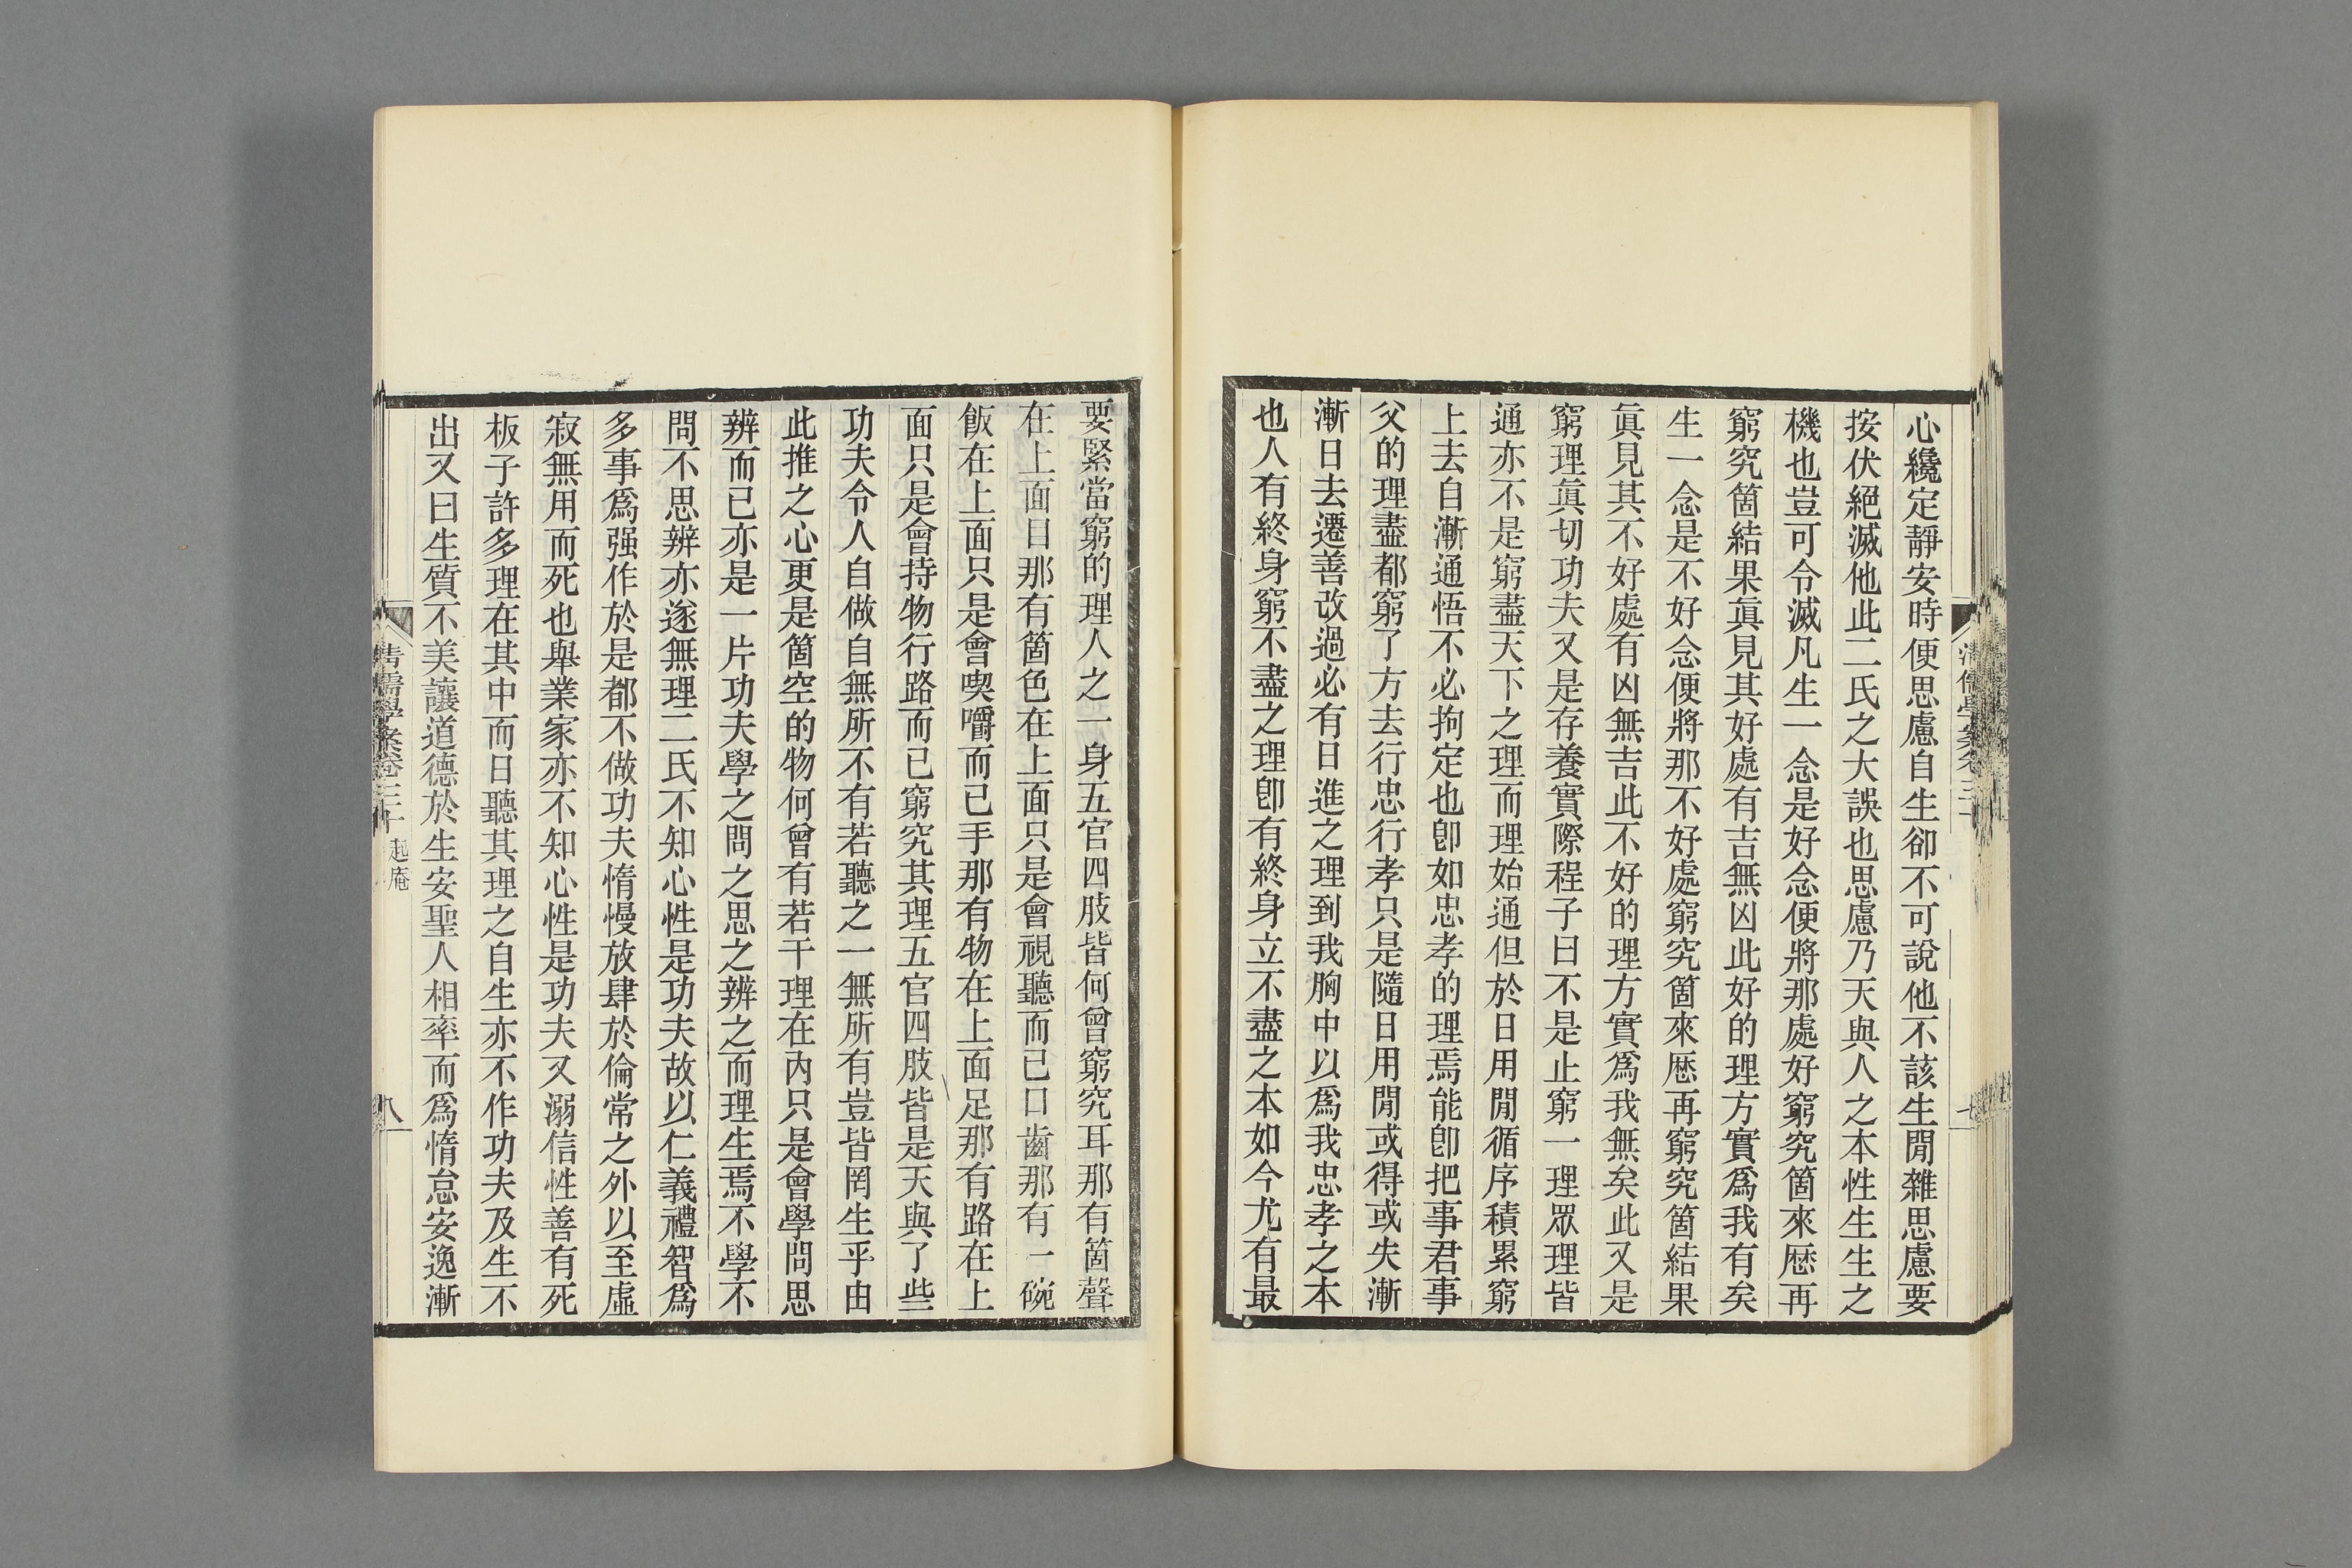 心纔定靜安時便思慮自生卻不可說他不該生閒雜思慮要
按伏絕滅他此二氏之大誤也思慮乃天與人之本性生生之
機也豈可令滅凡生一念是好念便將那處好窮究箇來歷再
窮究箇結果眞見其好處有吉無凶此好的理方實爲我有矣
生一念是不好念便將那不好處窮究箇來歷再窮究箇結果
眞見其不好處有凶無吉此不好的理方實爲我無矣此又是
窮理眞切功夫又是存養實際程子曰不是止窮一理眾理皆
通亦不是窮盡天下之理而理始通但於日用閒循序積累窮
上去自漸通悟不必拘定也卽如忠孝的理焉能卽把事君事
父的理盡都窮了方去行忠行孝只是隨日用閒或得或失漸
漸日去遷善改過必有日進之理到我胸中以爲我忠孝之本
也人有終身窮不盡之理卽有終身立不盡之本如今尤有最
要緊當窮的理人之一身五官四肢皆何曾窮究耳那有箇聲
在上面目那有箇色在上面只是會視聽而已口齒那有一碗
飯在上面只是會喫嚼而已手那有物在上面足那有路在上
面只是會持物行路而已窮究其理五官四肢皆是天與了些
功夫令人自做自無所不有若聽之一無所有豈皆罔生乎由
此推之心更是箇空的物何曾有若干理在內只是會學問思
辨而已亦是一片功夫學之問之思之辨之而理生焉不學不
問不思辨亦遂無理二氏不知心性是功夫故以仁義禮智爲
多事爲强作於是都不做功夫惰慢放肆於倫常之外以至虛
寂無用而死也舉業家亦不知心性是功夫又溺信性善有死
板子許多理在其中而日聽其理之自生亦不作功夫及生不
出又曰生質不美讓道德於生安聖人相率而爲惰怠安逸漸
清儒學案卷三十 起庵
八